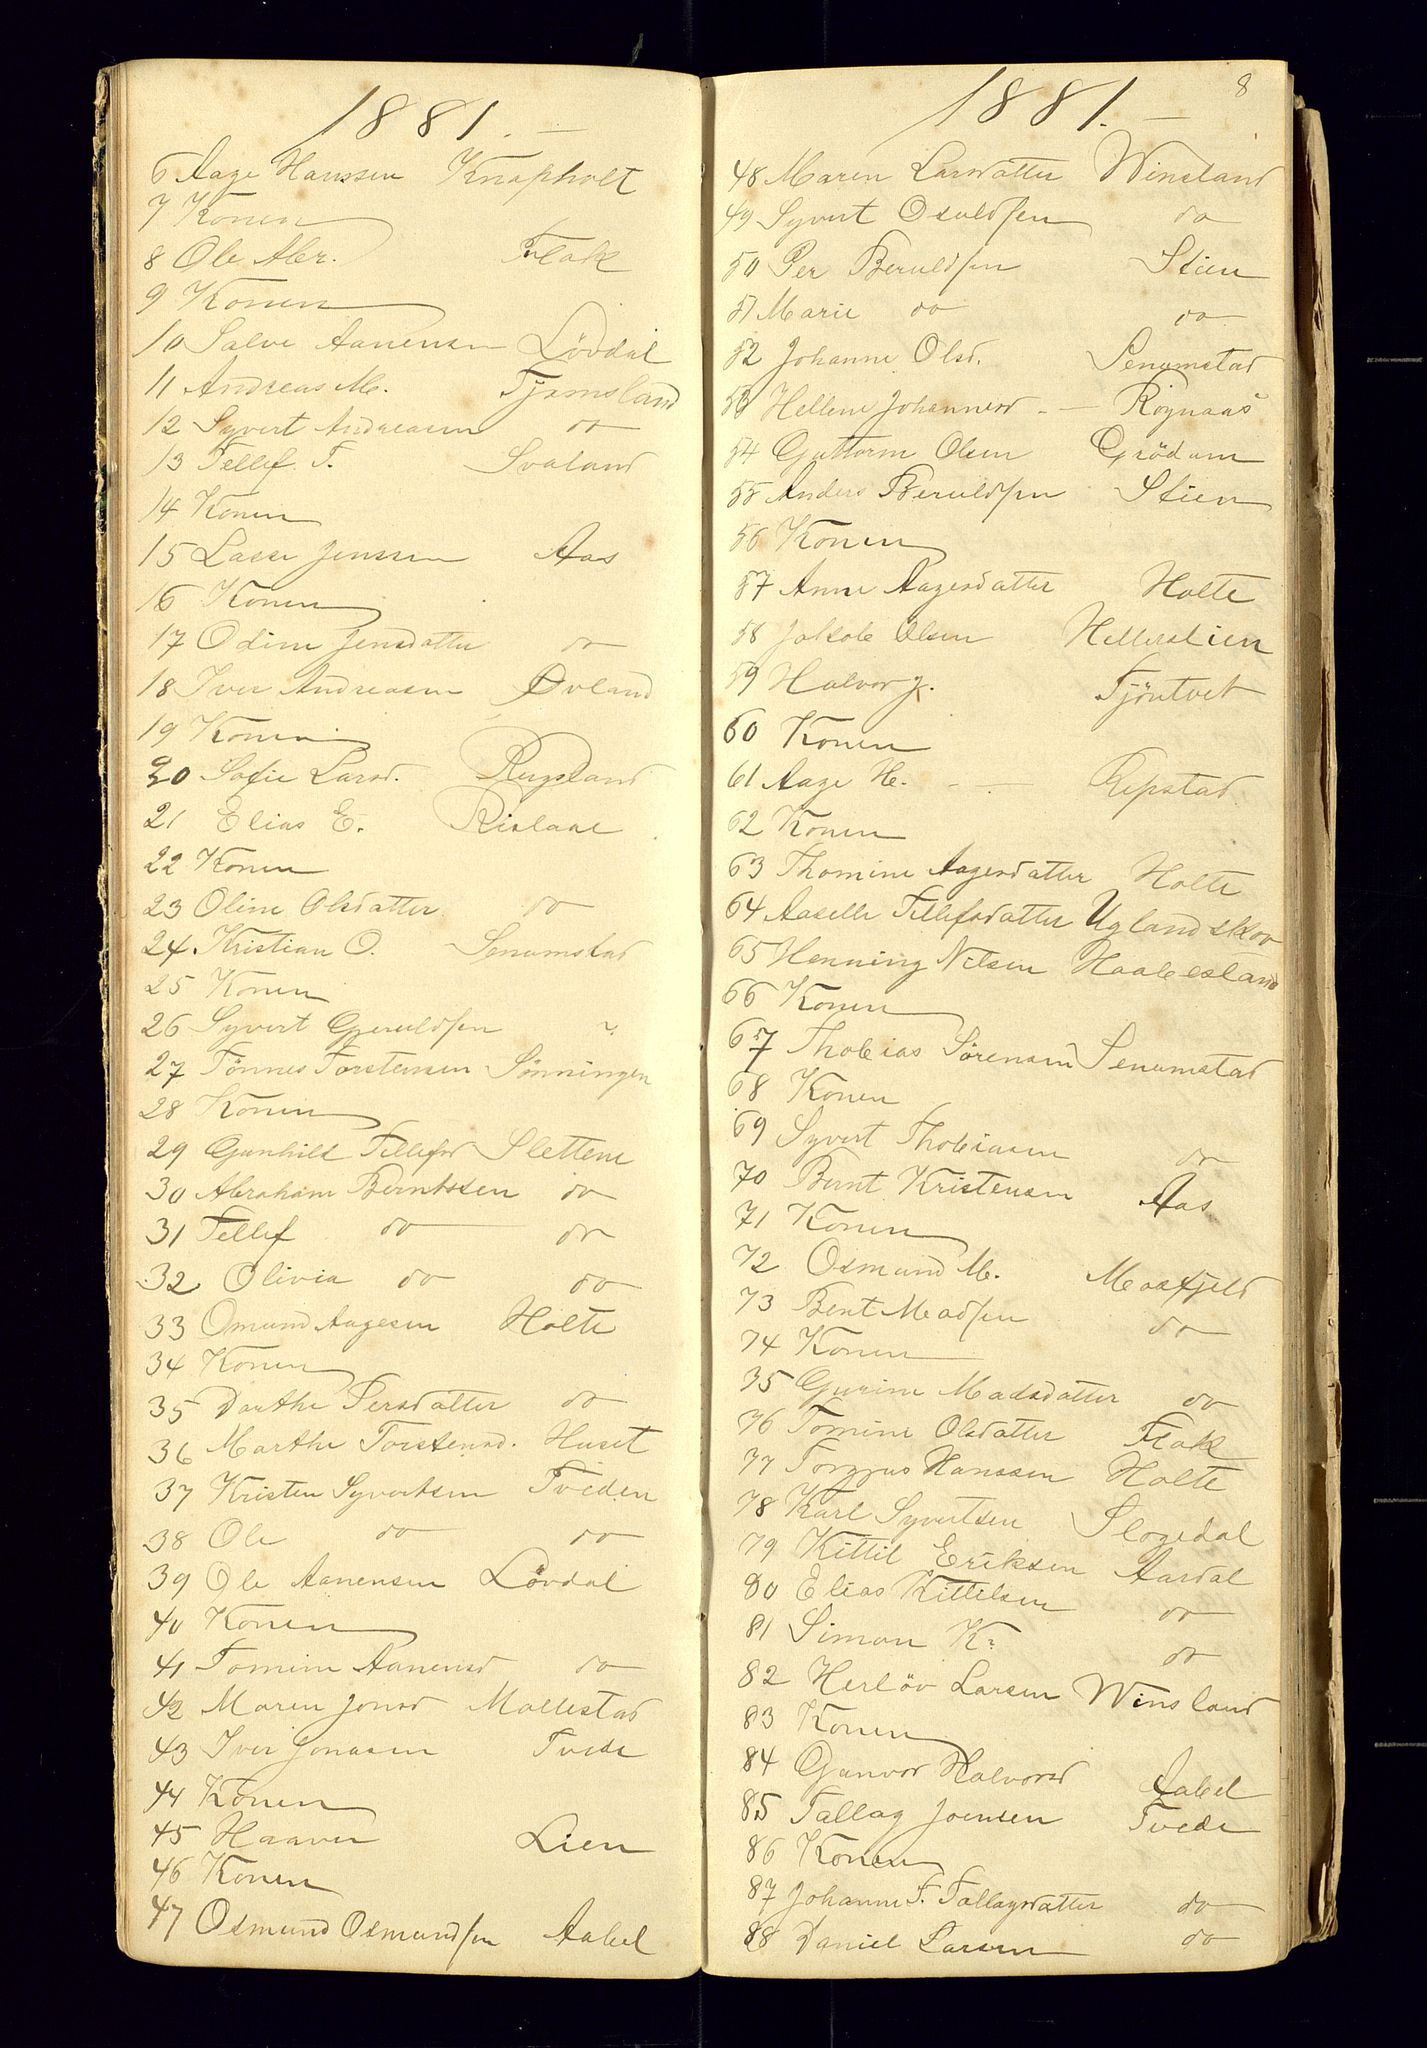 1881. —
6 Aage Hanssen Knapholt
7 Konen
8 Ole Abr. Flak
9 Konen
10 Salve Aanensen Lövdal
11 Andreas M. Tjomsland
12 Syvert Andreasen do
13 Tellef T. Svaland
14 Konen
15 Lasse Jenssen Aas
16 Konen
17 Odine Jensdatter do
18 Iver Andreasen Øvland
19 Konen
20 Sofie Larsd. Rugsland
21 Elias E. Rislaae
22 Konen
23 Oline Olsdatter do
24 Kristian O. Senumstad
25 Konen
26 Syvert Gjeruldsen ?
27 Tönnes Torstensen Sönningen
28 Konen
29 Gunhild Tellefsd Slettene
30 Abraham Berntssen do
31 Tellef do do
32 Olivia do do
33 Omund Aagesen Holte
34 Konen
35 Dorthe Persdatter do
36 Marthe Torstensd. Huset
37 Kristen Syvertsen Tveden
38 Ole do do
39 Ole Aanensen Lövdal
40 Konen
41 Tomine Aanensd do
42 Maren Jonsd Mollestad
43 Iver Jonasen Tvede
44 Konen
45 Haaver Lien
46 Konen
47 Osmund Osmundsen Aabel
8
1881. —
48 Maren Larsdatter Winsland
49 Syvert Osuldsen do
50 Per Beruldsen Stien
51 Marie do do
52 Johanne Olsd. Senumstad
53 Hellene Johannesd. — Rognaas
54 Guttorm Olsen Grödum
55 Anders Beruldsen Stien
56 Konen
57 Anne Aagesdatter Holte
58 Jakob Olsen Hellerslien
59 Halvor J. Fjöntvet
60 Konen
61 Aage H. — — Repstad
62 Konen
63 Thomine Aagesdatter Holte
64 Aaselle Tellefsdatter Uglandskov
65 Henning Nilsen Haabesland
66 Konen
67 Thobias Sörensen Senumstad
68 Konen
69 Syvert Thobiasen do
70 Bernt Kristensen Aas
71 Konen
72 Osmund M. Mosfjeld
73 Bent Madsen do
74 Konen
35 Gurine Madsdatter do
76 Tomine Olsdatter Flak
77 Torjus Hanssen Holte
78 Karl Syvertsen Slogedal
79 Kittil Eriksen Aardal
80 Elias Kittelsen do
81 Simon K? do
82 Herlöv Larsen Winsland
83 Konen
84 Gunvor Halvorsd Aabel
85 Tallag Joensen Tvede
86 Konen
87 Johanne T. Tallagsdatter do
88 Daniel Larsen do